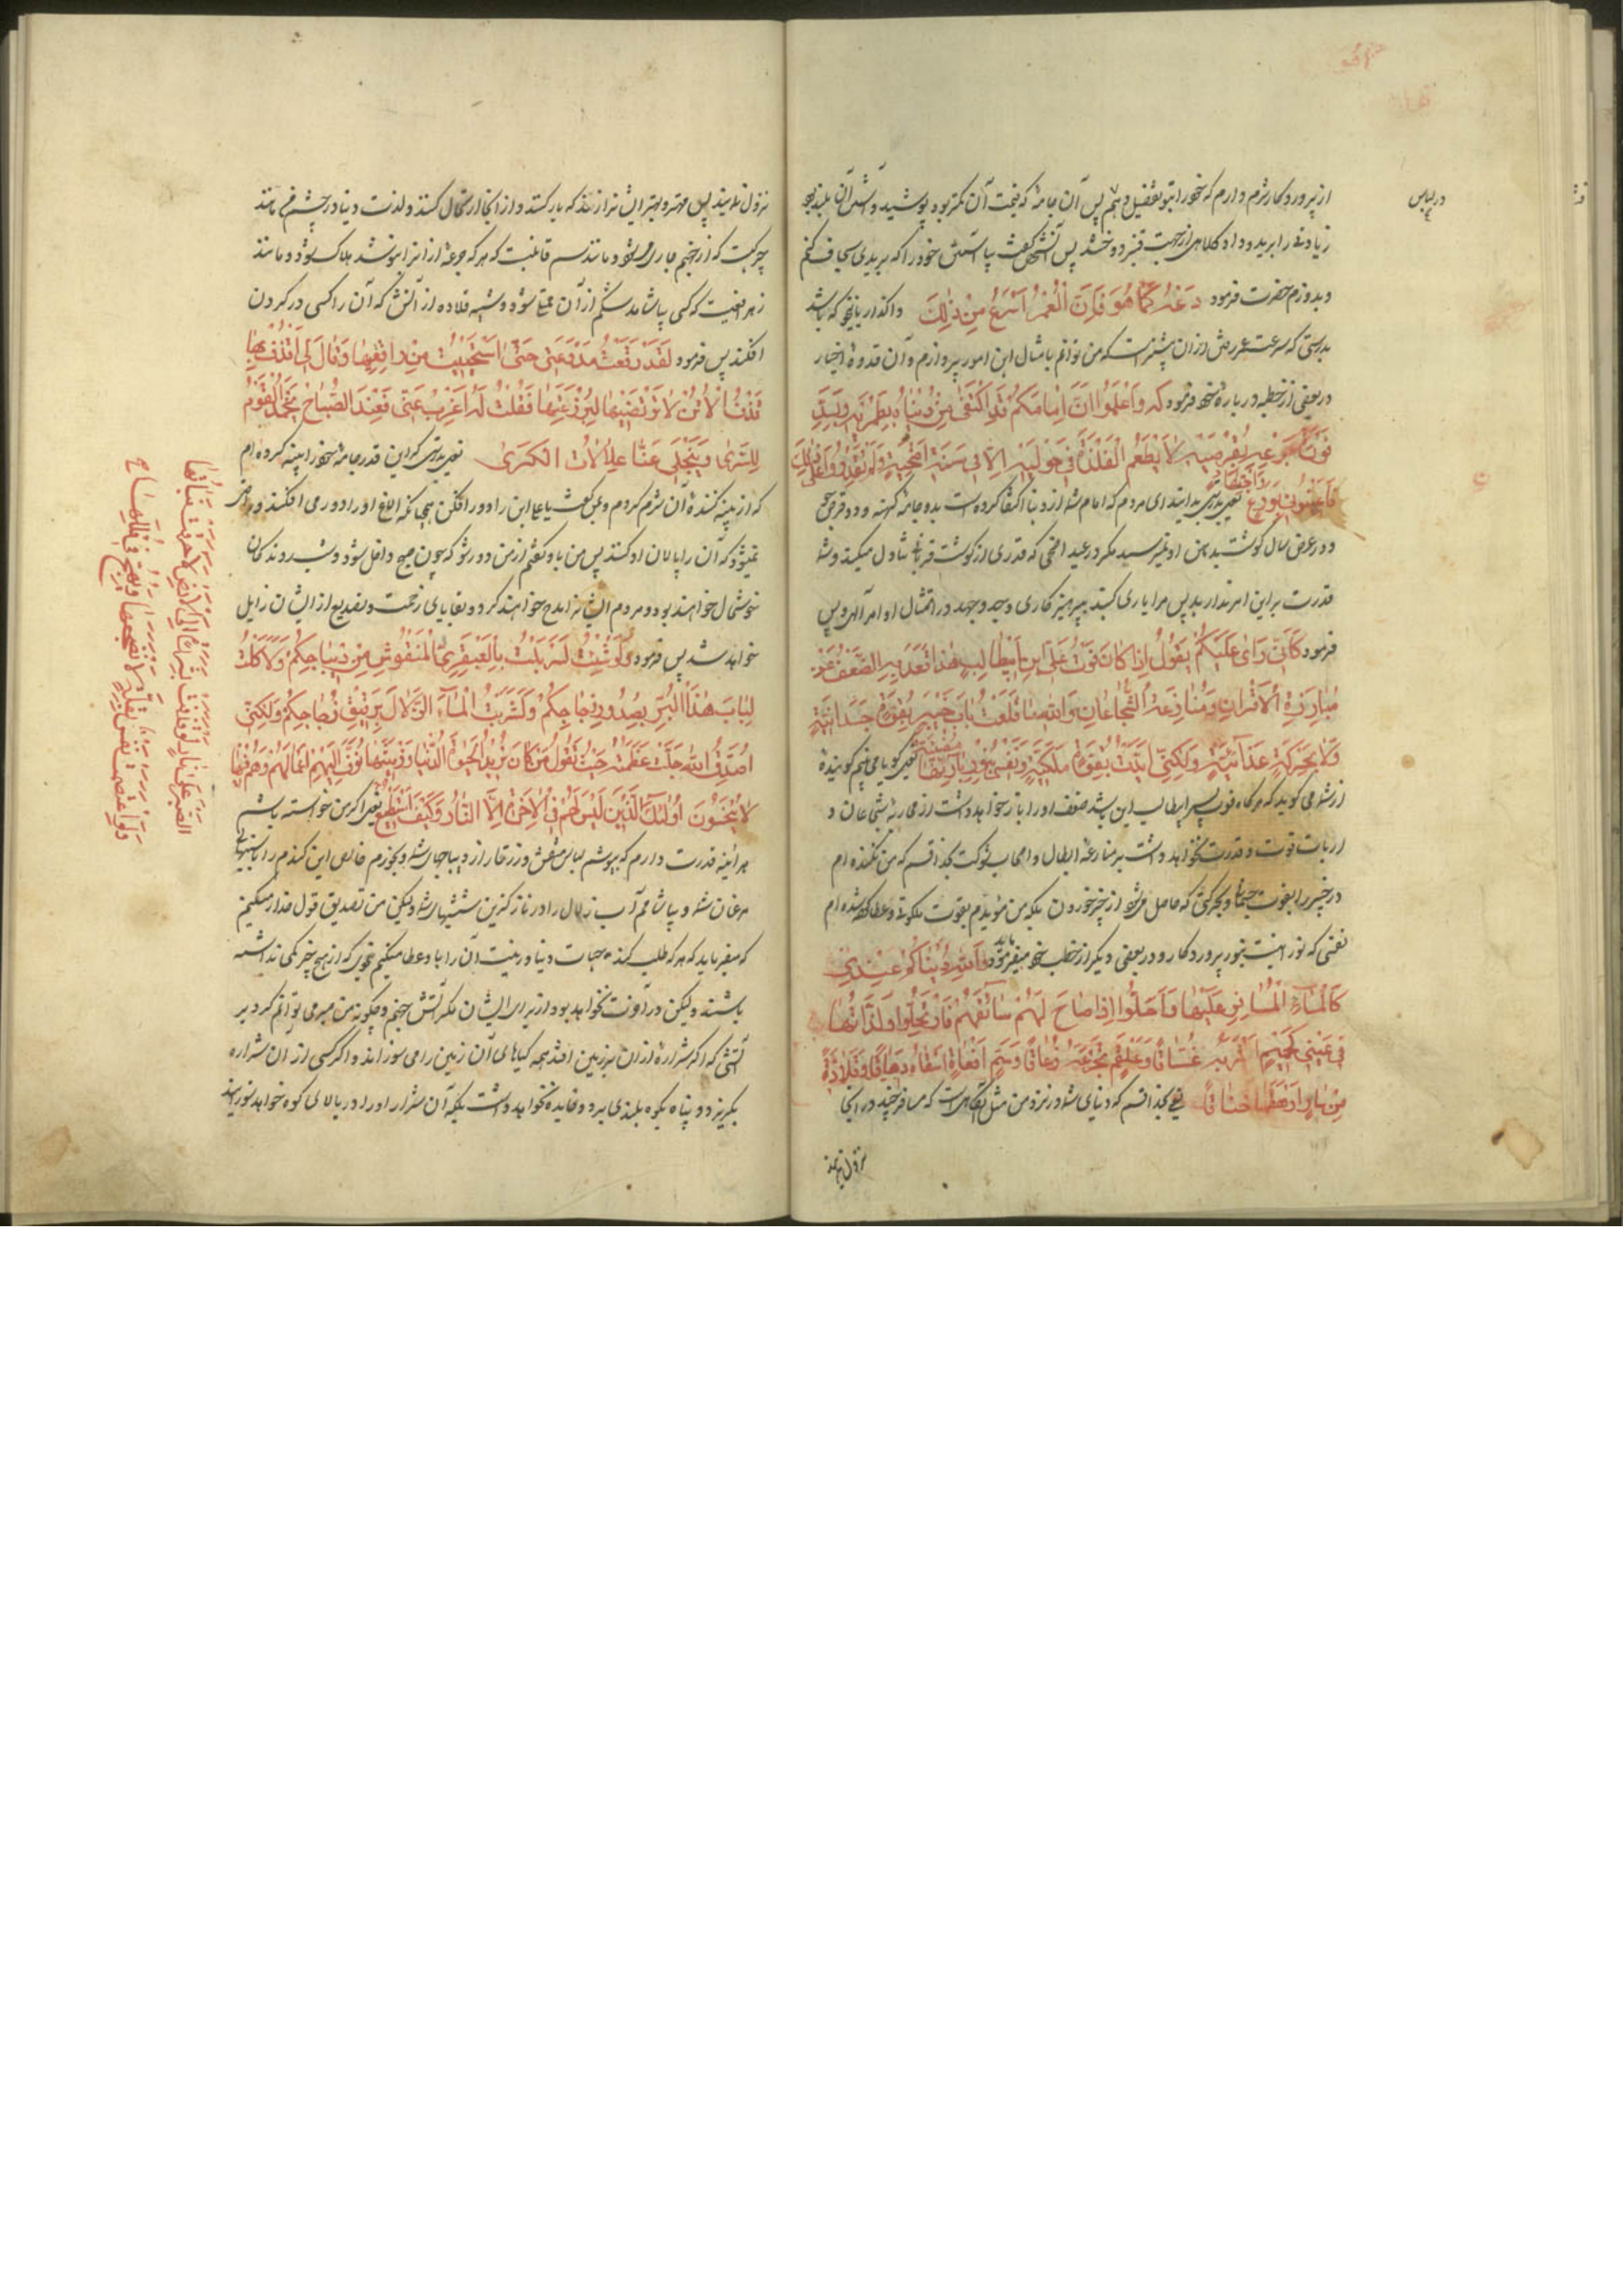 در لباس
از پروردگار شرم دارم که خود را بتو تفضیل دهم پس آن جامه که قیمت آن کمتر بود پوشید و آستین آن بلند بود
زیادتی را برید و داد کلاهی از جهت قنبر دوختند پس آن شخص گفت بیا آستین خود را که بریدی سجاف کنم
و بدوزم حضرت فرمود دَعْهُ كَمَا هُوَ فَإِنَّ الْعُمْرَ أَسْرَعُ مِنْ ذٰلِكَ واگذار بانحو که باشد
بدرستی که سرعت عمر بیش از آن بیشتر است که من توانم بامثال این امور پردازم و آن قدوهٔ اخیار
در بعضی از خطبه درباره خود فرمود که وَاعْلَمُوا اَنَّ اِمَامَكُمْ قَدِ اكْتَفٰى مِنْ دُنْيَاهُ بِطِمْرَيْهِ وَيَسُدُّ
فَوْرَةَ جُوعِهِ بِقُرْصَيْهِ لَا يَطْعَمُ الْفَلْذَةَ فِى حَوْلَيْهِ اِلَّا فِى سَنَةِ اُضْحِيَّةٍ وَلَنْ تَقْدِرُوا عَلٰى ذٰلِكَ
فَاَعِينُونِى بِوَرَعٍ وَاجْتِهَادٍ یعنی بدانید ای مردم که امام شما از دنیا اکتفا کرده است بدو جامه کهنه و دو قرص جو
و در عرض سال گوشت بدهن او نمیرسد مگر در عید اضحی که قدری از گوشت قربانی تناول میکند و شما
قدرت بر این امر ندارید پس مرا یاری کنید بپرهیزکاری و جد و جهد در امتثال اوامر الهی و پس
فرمود كَاَنِّى عَلَيْكُمْ يَقُولُ اِذَا كَانَ قُوتُ عَلِىِّ بْنِ اَبِيطَالِبٍ هٰذَا قَعَدَ بِهِ الضَّعْفُ عَنْ
مُبَارَزَةِ الْاَقْرَانِ وَمُنَازَعَةِ الشُّجْعَانِ وَاللهِ مَا قَلَعْتُ بَابَ خَيْبَرَ بِقُوَّةٍ جَسَدَانِيَّةٍ
وَلَا بِحَرَكَةٍ غَذَائِيَّةٍ وَلٰكِنِّى اُيِّدْتُ بِقُوَّةٍ مَلَكِيَّةٍ وَنَفْسٍ بِنُورِ بَارِئِهَا مُضِيئَةٍ یعنی گویا می بینم گوینده
از شما می گوید که هرگاه قوت پسر ابیطالب این باشد ضعف او را باز خواهد داشت از محاربه شجاعان و
ارباب قوت و قدرت نخواهد داشت بر منازعه ابطال و اصحاب شوکت بخدا قسم که من نکنده ام
در خیبر را بقوت جسمانی و بحرکتی که حاصل میشود از چیز خوردن بلکه من مؤیدم بقوت ملکوتی و عطا کرده شده ام
نفسی که نورانیست بنور پروردگار و در بعضی دیگر از خطب خود میفرماید وَاللهِ دُنْيَاكُمْ عِنْدِى
كَالْمَاءِ الْمُسَافِرِ عَلَيْهَا فَاَحَلُّوا اِذَا صَاحَ لَهُمْ سَائِقُهُمْ فَارْتَحَلُوا وَلَذَّاتُهَا
فِى عَيْنِى كَحَمِيمٍ اَشْرَبُهُ غَسَّاقًا وَعَلْقَمٍ اَتَجَرَّعُهُ زُعَاقًا وَسَمِّ اَفْعَاةٍ اُسْقَاهُ دِهَاقًا وَقِلَادَةٍ
مِنْ نَارٍ اُوهَقُهَا خِنَاقًا یعنی بخدا قسم که دنیای شما در نزد من مثل آبگاهیست که مسافر چند در آنجا
نزول نمایند
نزول نمایند پس مهتر و بهتر ایشان آواز کند که بار کنید و از آنجا ارتحال کنند و لذت دنیا در چشم من مانند
چرکیست که از جهنم جاری میشود و مانند سم قاتلیست که هرکه جرعه از آنرا بنوشد هلاک شود و مانند
زهر افعیست که کسی بیاشامد شکم از آن ممتلی شود و شبیه قلاده از آتش که آن را کسی در گردن
افکند پس فرمود لَقَدْ رَقَعْتُ مِدْرَعَتِى حَتّٰى اسْتَحْيَيْتُ مِنْ رَاقِعِهَا وَقَالَ لِى اقْذِفْ بِهَا
قَذْفَ الْاُتُنِ لَا تَرْتَضِيهَا لِيَرْقَعَهَا فَقُلْتُ لَهُ اعْزُبْ عَنِّى فَعِنْدَ الصَّبَاحِ يَحْمَدُ الْقَوْمُ
السُّرٰى وَيَنْجَلِى عَنَّا عُلَالَاتُ الْكَرٰى یعنی بدرستی که این قدر جامه خود را پینه کرده ام
که از پینه کننده آن شرم کردم و بمن گفت یا علی این را دور افکن همچنانکه الاغ او را دور می افکند و راضی
نمیشود که آن را پالان او کنند پس من باو گفتم از من دور شو که چون صبح داخل شود و شب روندگان
خوشحال خواهند بود و مردم ایشان را مدح خواهند کرد و بقایای زحمت و تصدیع از ایشان زایل
خواهد شد پس فرمود وَلَوْ شِئْتُ لَتَسَرْبَلْتُ بِالْعَبْقَرِىِّ الْمَنْقُوشِ مِنْ دِيبَاجِكُمْ وَلَاَكَلْتُ
لُبَابَ هٰذَا الْبُرِّ بِصُدُورِ دَجَاجِكُمْ وَلَشَرِبْتُ الْمَاءَ الزُّلَالَ بِرَقِيقِ زُجَاجِكُمْ وَلٰكِنِّى
اُصَدِّقُ اللهَ جَلَّتْ عَظَمَتُهُ حَيْثُ يَقُولُ مَنْ كَانَ يُرِيدُ الْحَيٰوةَ الدُّنْيَا وَزِينَتَهَا نُوَفِّ اِلَيْهِمْ اَعْمَالَهُمْ وَهُمْ فِيهَا
لَا يُبْخَسُونَ اُولٰئِكَ الَّذِينَ لَيْسَ لَهُمْ فِى الْاٰخِرَةِ اِلَّا النَّارُ وَكَيْفَ اَسْتَطِيعُ یعنی اگر من خواسته باشم
هرآینه قدرت دارم که بپوشم لباس منقش و زرتار از دیباجهای شما و بخورم خالص این گندم را با سینهای
مرغان شما و بیاشامم آب زلال را در نازکترین شیشهای شما ولیکن من تصدیق قول خدا میکنم
که میفرماید که هرکه طلب کند حیات دنیا و زینت آن را باو عطا میکنیم بنحوی که از هیچ چیز کمی نداشته
باشند ولیکن در آخرت نخواهد بود از برای ایشان مگر آتش جهنم و چگونه من صبر می توانم کرد بر
آتشی که اگر شراره از آن بر زمین افتد همه گیاهای آن زمین را می سوزاند و اگر کسی از آن شراره
بگریزد و پناه بکوه بلندی برد فایده نخواهد داشت بلکه آن شرار او را در بالای کوه خواهد سوزانید
الصَّبْرَ عَلٰى نَارٍ لَوْ قَذَفَتْ بِشَرَرَةٍ اِلَى الْاَرْضِ لَاَحْرَقَتْ نَبَاتَهَا
وَلَوِ اعْتَصَمَتْ نَفْسٌ بِقُلَّةٍ لَاَنْضَجَهَا وَهَجُ